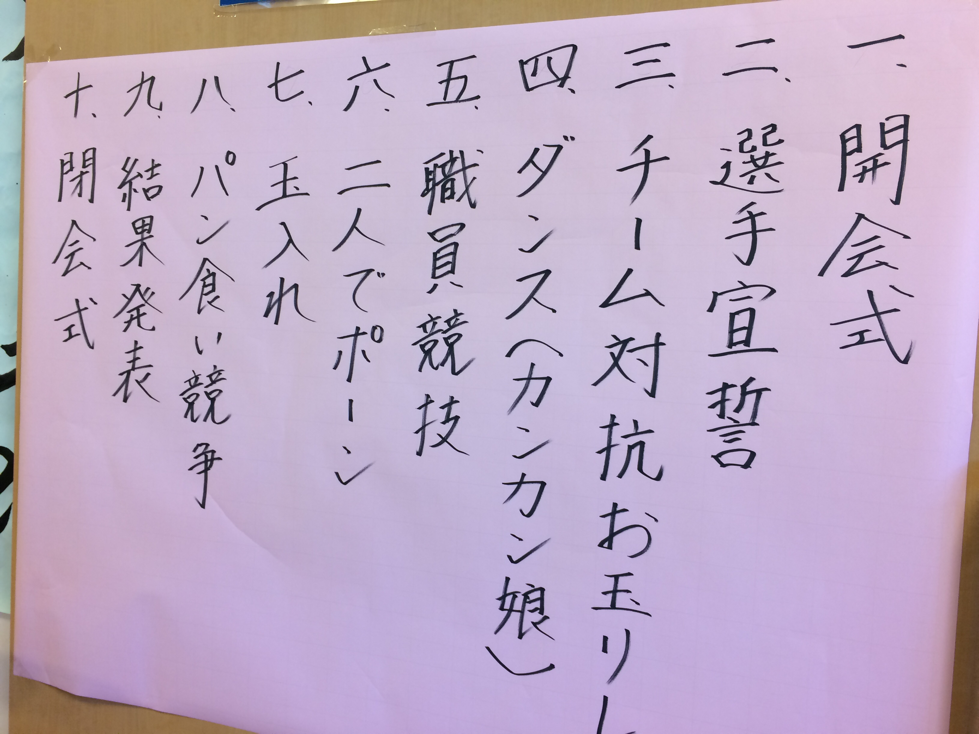 一、開会式
二、選手宣誓
三、チーム対抗お玉リレ
四、ダンス(カンカン娘)
五、職員競技
六、二人でポーン
七、玉入れ
八、パン食い競争
九、結果発表
十、閉会式